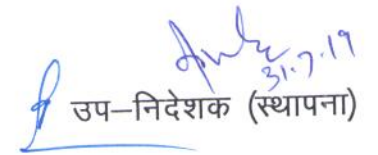 31.7.19
उप–निदेशक (स्थापना)